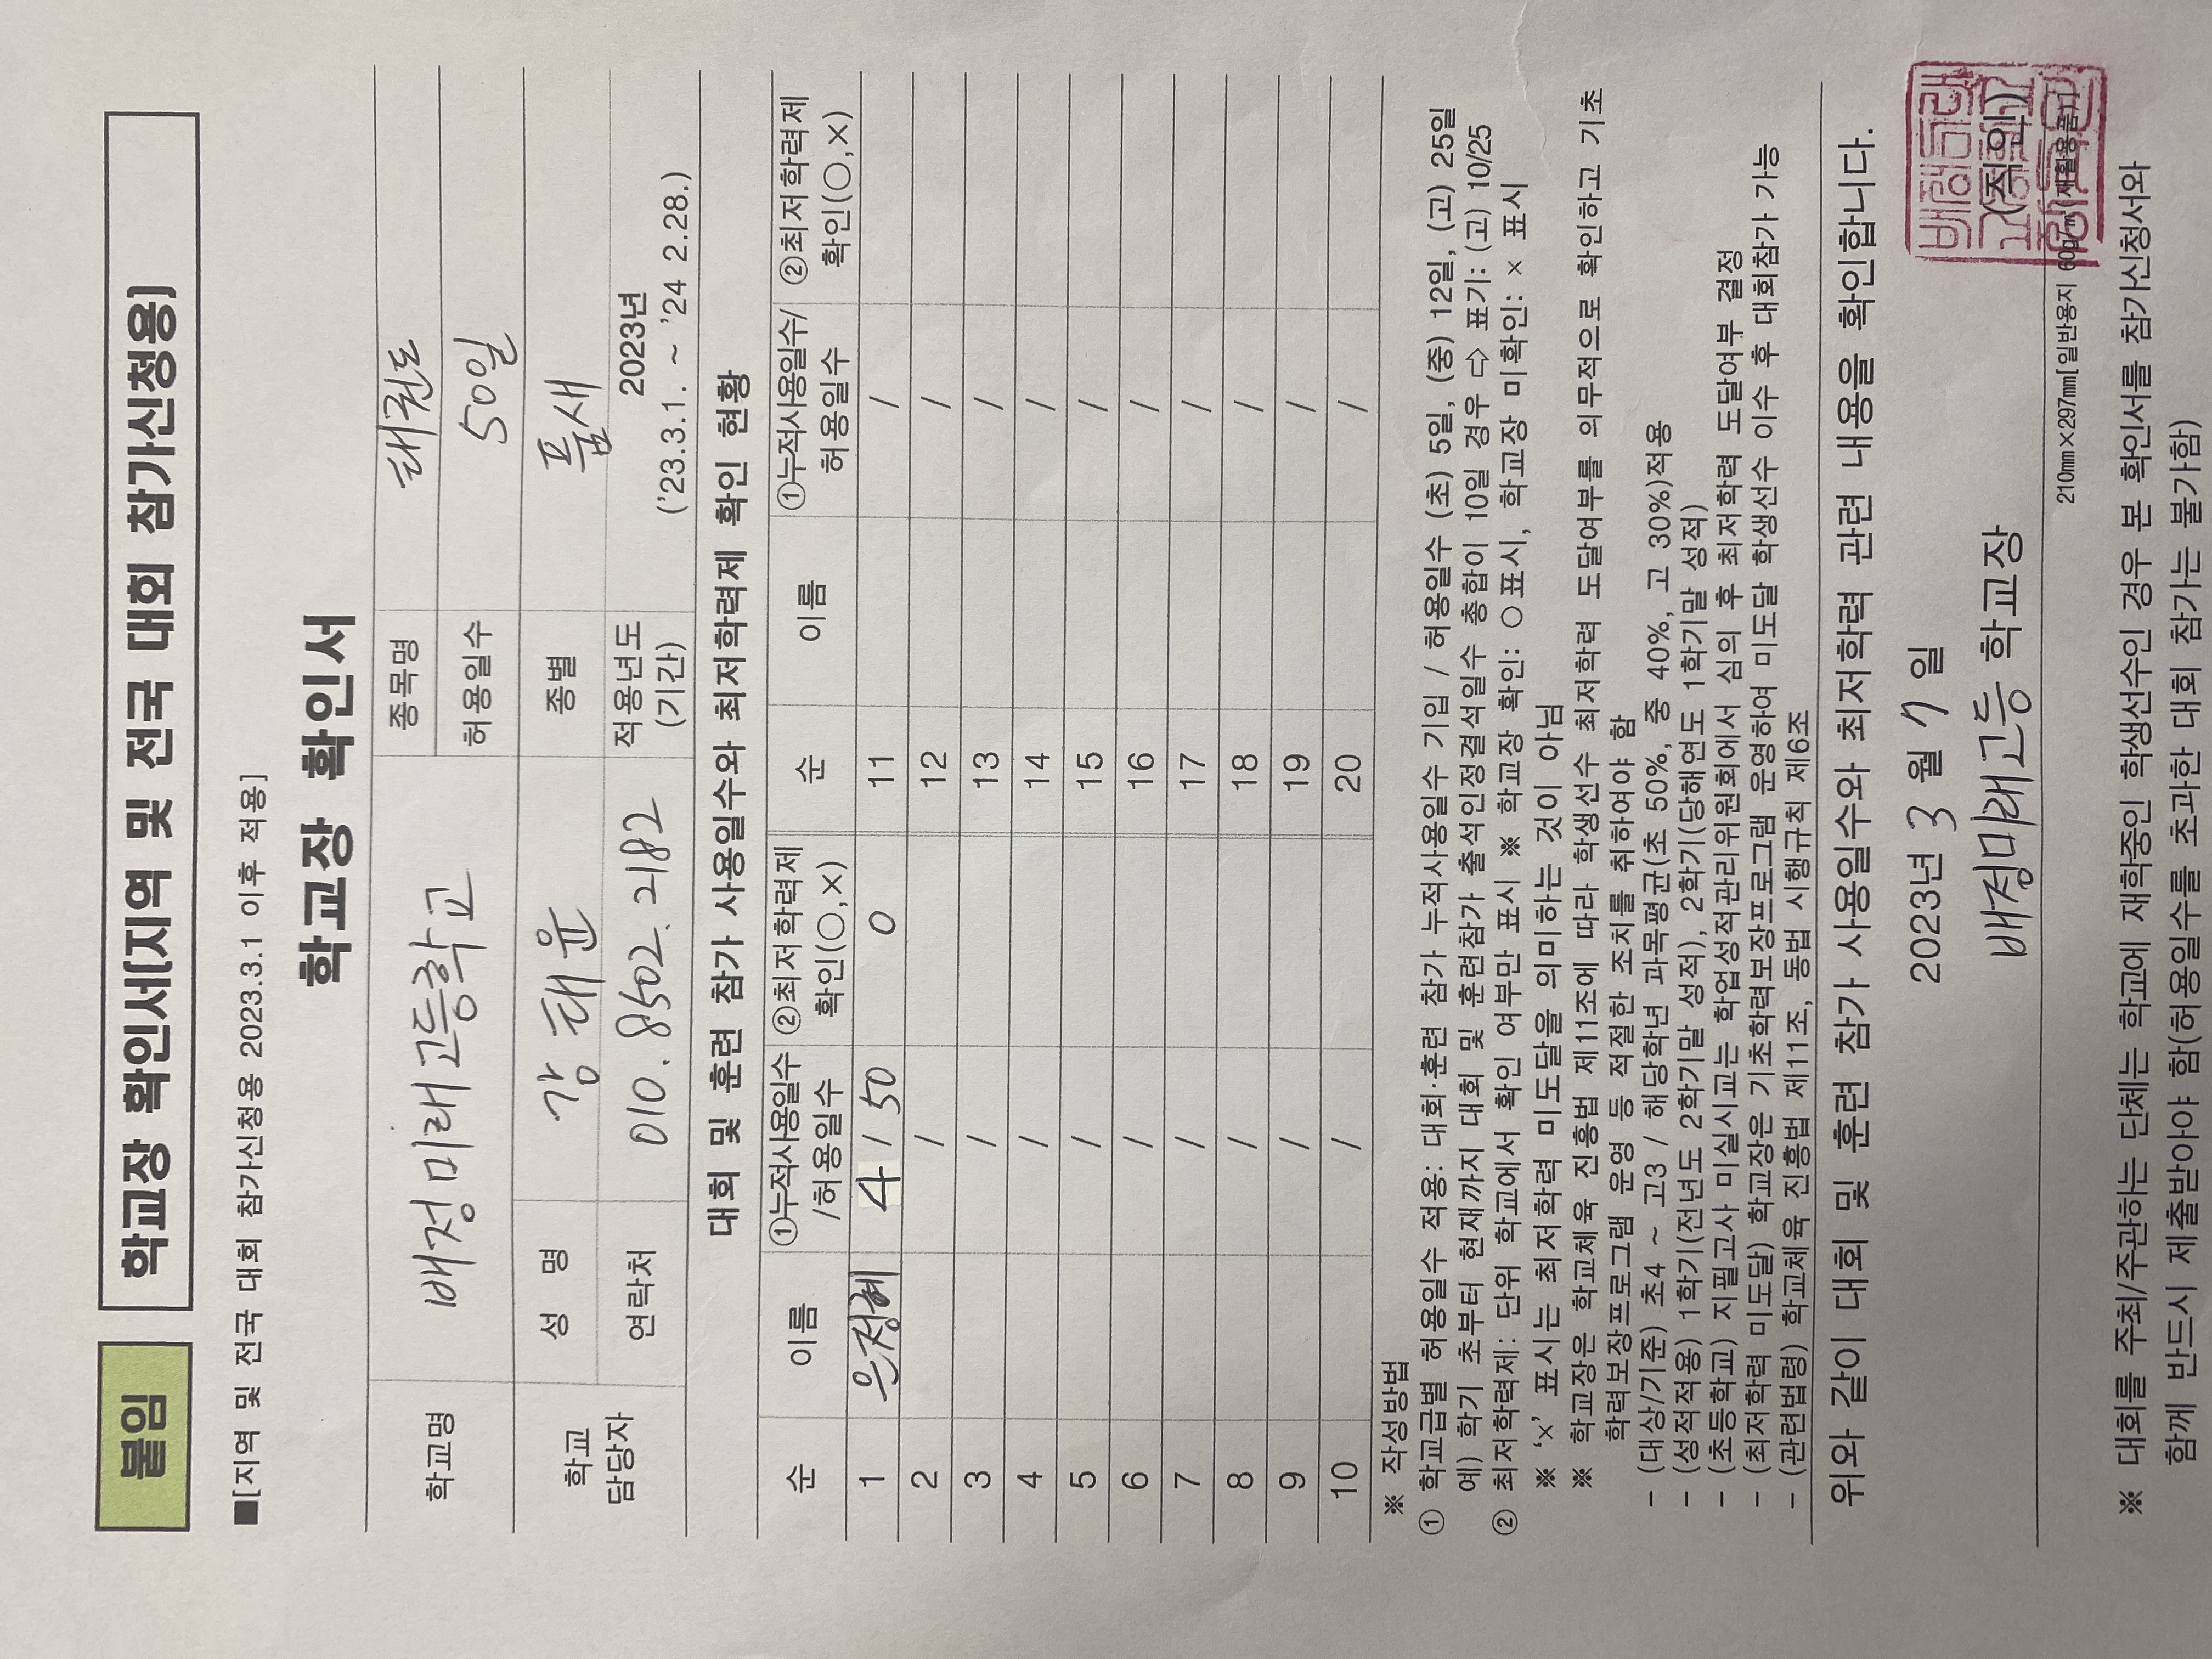 붙임 학교장 확인서[지역 및 전국 대회 참가신청용]
■[지역 및 전국 대회 참가신청용 2023.3.1 이후 적용]
학교장 확인서
학교명 배정미래고등학교 종목명 태권도
허용일수 50일
학교 담당자 성 명 강태윤 종별 품새
연락처 010.8502.2182 적용년도 (기간) 2023년 ('23.3.1. ~ '24 2.28.)
대회 및 훈련 참가 사용일수와 최저학력제 확인 현황
순 이름 ①누적사용일수/허용일수 ②최저학력제 확인(○,×) 순 이름 ①누적사용일수/허용일수 ②최저학력제 확인(○,×)
1 은정혜 4 / 50 0 11 /
2 / 12 /
3 / 13 /
4 / 14 /
5 / 15 /
6 / 16 /
7 / 17 /
8 / 18 /
9 / 19 /
10 / 20 /
※ 작성방법
① 학교급별 허용일수 적용: 대회·훈련 참가 누적사용일수 기입 / 허용일수 (초) 5일, (중) 12일, (고) 25일
예) 학기 초부터 현재까지 대회 및 훈련참가 출석인정결석일수 총합이 10일 경우 ⇨ 표기: (고) 10/25
② 최저학력제: 단위 학교에서 확인 여부만 표시 ※ 학교장 확인: ○ 표시, 학교장 미확인: × 표시
※ '×' 표시는 최저학력 미도달을 의미하는 것이 아님
※ 학교장은 학교체육 진흥법 제11조에 따라 학생선수 최저학력 도달여부를 의무적으로 확인하고 기초
학력보장프로그램 운영 등 적절한 조치를 취하여야 함
- (대상/기준) 초4 ~ 고3 / 해당학년 과목평균(초 50%, 중 40%, 고 30%)적용
- (성적적용) 1학기(전년도 2학기말 성적), 2학기(당해연도 1학기말 성적)
- (초등학교) 지필고사 미실시교는 학업성적관리위원회에서 심의 후 최저학력 도달여부 결정
- (최저학력 미도달) 학교장은 기초학력보장프로그램 운영하여 미도달 학생선수 이수 후 대회참가 가능
- (관련법령) 학교체육 진흥법 제11조, 동법 시행규칙 제6조
위와 같이 대회 및 훈련 참가 사용일수와 최저학력 관련 내용을 확인합니다.
2023년 3 월 7 일
배정미래고등 학교장 (직인)
210㎜×297㎜[일반용지 60g/㎡(재활용품)]
※ 대회를 주최/주관하는 단체는 학교에 재학중인 학생선수인 경우 본 확인서를 참가신청서와
함께 반드시 제출받아야 함(허용일수를 초과한 대회 참가는 불가함)